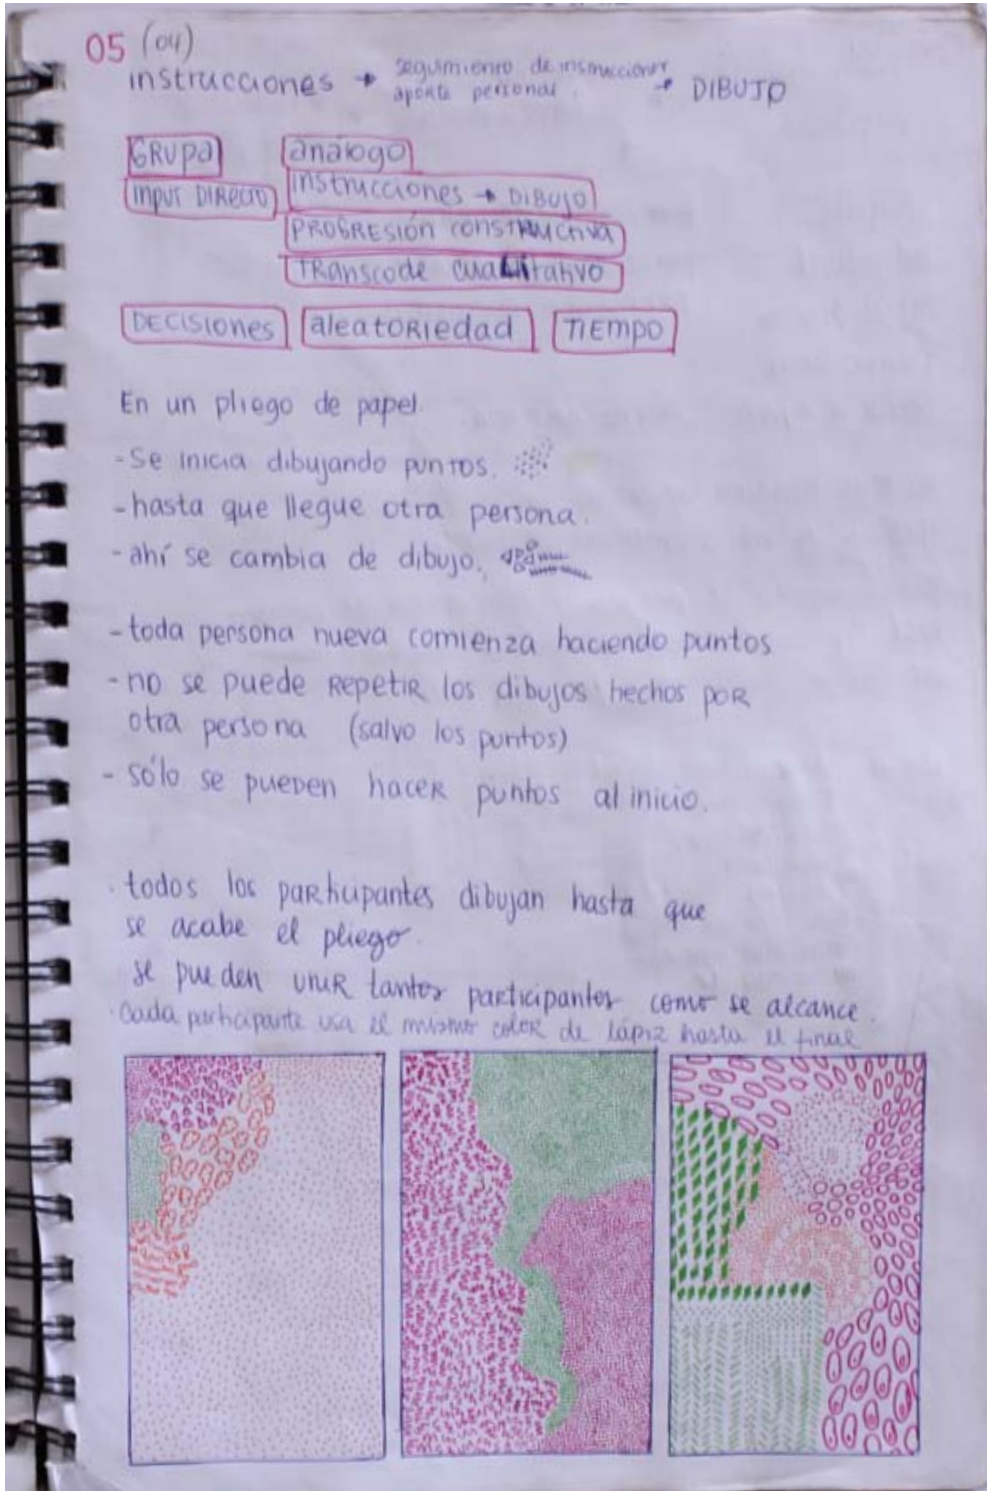 05 (04)
instrucciones → seguimiento de instrucciones
aporte personal. → DIBUJO
GRUPAL análogo
input DIRECTO instrucciones → DIBUJO
PROGRESIÓN constRuctiva
TRanscode cualitativo
DECISIONES aleatoRiedad TIEMPO
En un pliego de papel.
- Se inicia dibujando puntos.
- hasta que llegue otra persona.
- ahí se cambia de dibujo.
- toda persona nueva comienza haciendo puntos
- no se puede Repetir los dibujos hechos poR
otra persona (salvo los puntos)
- sólo se pueden haceR puntos al inicio.
· todos los paRticipantes dibujan hasta que
se acabe el pliego.
· se pueden uniR tantos participantes como se alcance.
· Cada participante usa el mismo coloR de lápiz hasta el final